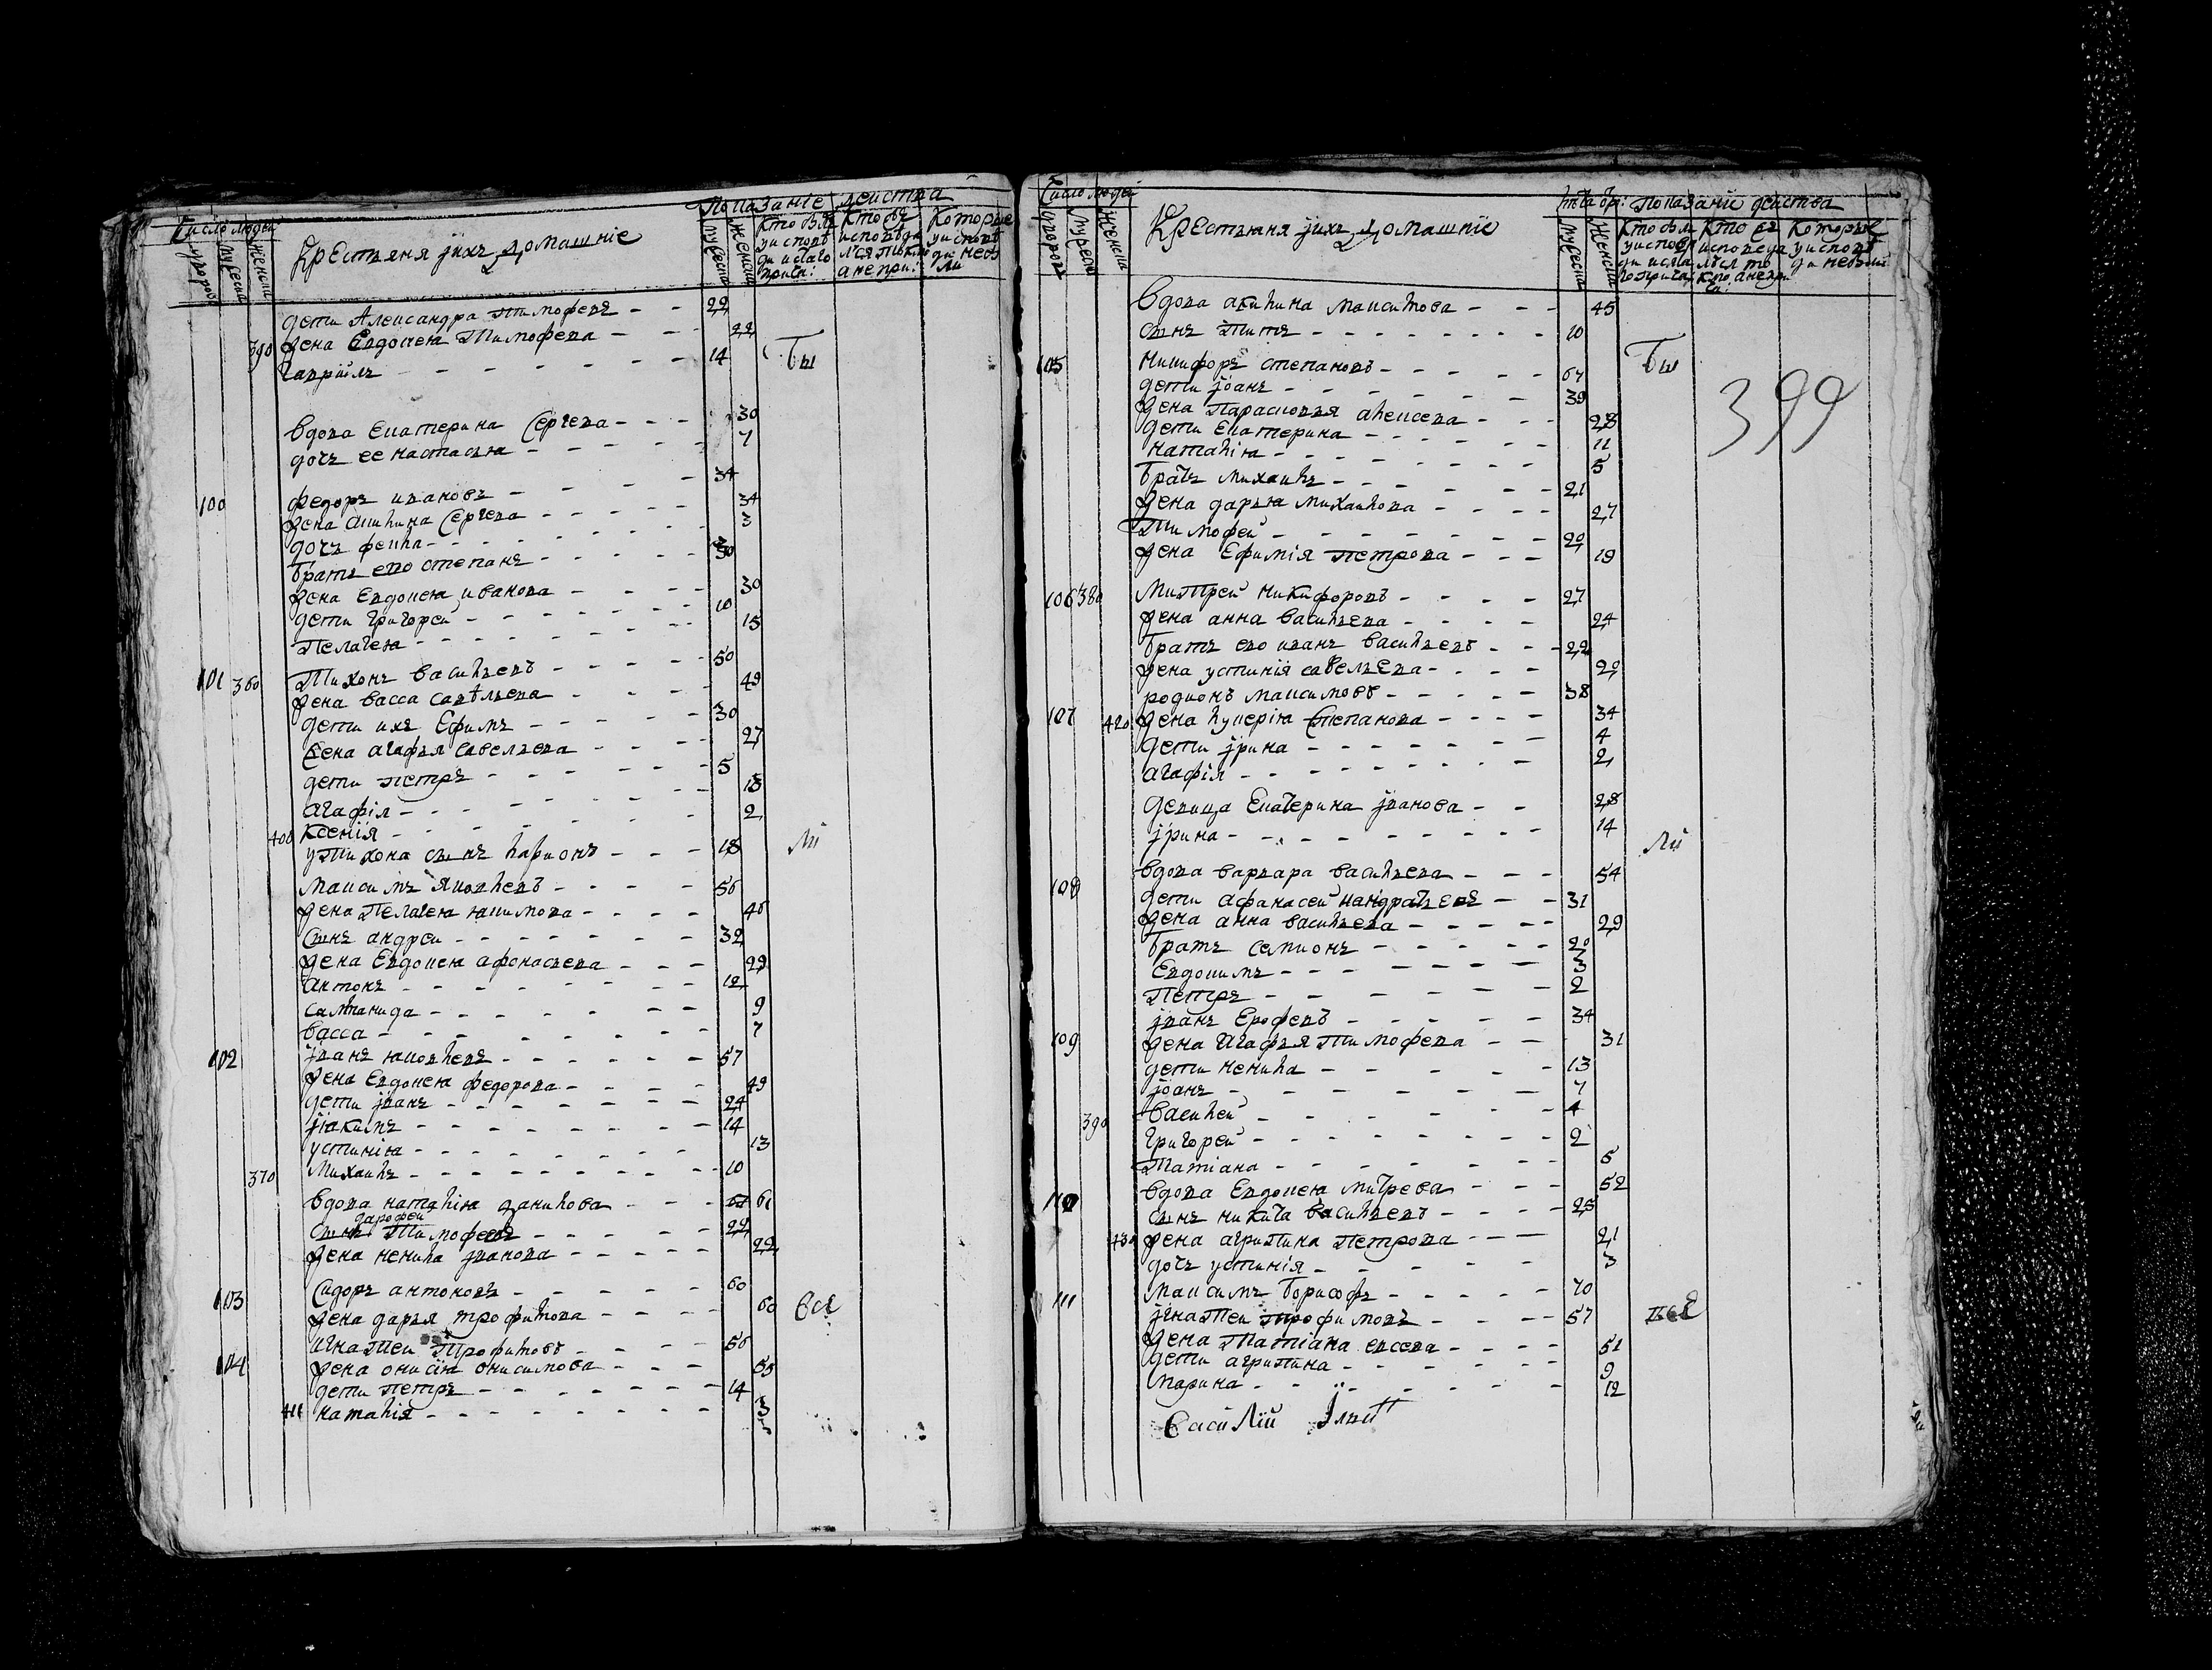 Число людей
Дворовъ
Мужеска
Женска
Крестьяня јихъ домашніе
Показаніе действа
Мужеска
Женска
Кто былъ
Кто былъ
Которые
дети Александра Тимофевъ - - 22
390 жена Евдокея Тимофева - - - 22
Гавріилъ - - - - - - 14 Бы
вдова Екатерина Сергева - - - 30
дочъ ее настасья - - - - - 7
100 федоръ ивановъ - - - - 34
жена акилина Сергева - - - - - 34
дочъ фекла - - - - - - 3
братъ ево степанъ - - - - - 30
жена Евдокея иванова - - - - 30
дети григореи - - - - - - 10
Пелагея - - - - - - - 15
101 360 Тихонъ васильевъ - - - - - 50
жена васса савельева - - - - 49
дети ихъ Ефимъ - - - - - 30
жена агафья савельева - - - 27
дети петръ - - - - - - 5
Агафія - - - - - - - 13
400 Ксенія - - - - - - - 2
у Тихона сынъ ларионъ - - - 18 ли
Максимъ яковлевъ - - - - 56
жена Пелагея якимова - - - - 46
Сынъ андреи - - - - - - 32
жена Евдокея афонасьева - - - 29
Антонъ - - - - - - - 12
саломанида - - - - - - - 9
васса - - - - - - - - 7
102 јванъ яковлевъ - - - - - - 57
жена Евдокея федорова - - - - 49
дети јванъ - - - - - - - 24
јіакимъ - - - - - - - - 14
устинія - - - - - - - - 13
370 Михаилъ - - - - - - - - 10
вдова наталія данилова - - - 61
дарофеи
Сынъ Тимофеевъ - - - - - 22
жена ненила јванова - - - - - 22
103 Сидоръ антоновъ - - - - - 60
жена дарья трофимова - - - - 60 все
104 игнатеи Трофимовъ - - - - 56
жена онисія онисимова - - - 55
дети петръ - - - - - - - 14
411 наталія - - - - - - - - 3
Число людей
Дворовъ
Мужеска
Женска
Крестьяня јихъ домашніе
показаніе действа
Мужеска
Женска
Кто былъ
Кто въ
Которые
399
вдова акилина максимова - - - 45
сынъ Титъ - - - - - - - 10
105 никифоръ степановъ - - - - - 67 Бы
дети јоанъ - - - - - - 39
жена Парасковья алексева - - - 28
дети Екатерина - - - - - - 11
наталія - - - - - - - 5
братъ михаилъ - - - - - - 21
жена дарья михаилова - - - - 27
Тимофеи - - - - - - - 20
жена Ефимія петрова - - - 19
106 380 Митреи никифоровъ - - - - 27
жена анна васильева - - - - 24
братъ ево иванъ васильевъ - - - 22
жена устинія савельева - - - - 20
родионъ максимовъ - - - - - 38
107 420 жена лукерія степанова - - - - 34
дети јрина - - - - - - - 4
агафія - - - - - - - - 2
девица Екатерина јванова - - 28
јрина - - - - - - - - - 14
вдова варвара васильева - - - 54 ли
108 дети афанасеи кандратьевъ - - 31
жена анна васильева - - - - - 29
братъ семионъ - - - - - - 20
Евдокимъ - - - - - - - - 3
Петръ - - - - - - 2
јванъ Ерофевъ - - - - - 34
109 жена Агафья Тимофева - - 31
дети ненила - - - - - 13
јоанъ - - - - - - - 7
390 василеи - - - - - - - 4
григореи - - - - - - - - 2
Татіана - - - - - - - 6
110 вдова Евдокея митрева - - - 52
сынъ никита васильевъ - - - - 25
430 жена агрипина петрова - - - 21
дочъ устинія - - - - - 3
111 Максимъ борисофъ - - - - - 70
јгнатеи трофимовъ - - - - 57 все
жена Татіана евсева - - - - 51
дети агрипина - - - - - - 9
марина - - - - - - - 12
василій Ильинъ